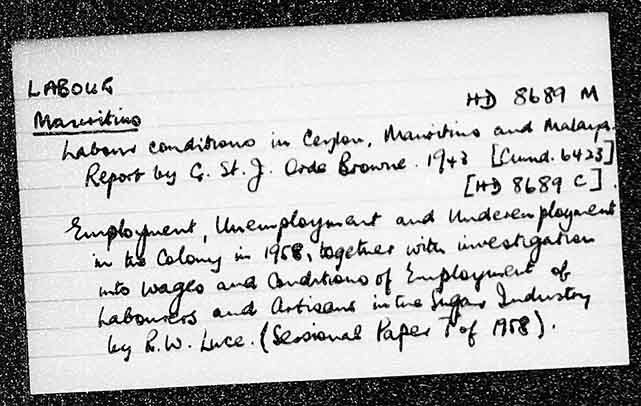 LABOUR
HD 8689 M
Mauritius
Labour conditions in Ceylon, Mauritius and Malaya.
Report by G. St. J. Orde Browne. 1943 [Cmd. 6423]
[HD 8689 C].
Employment, Unemployment and Underemployment
in the Colony in 1958, together with investigation
into wages and Conditions of Employment of
Labourers and Artisans in the Sugar Industry
by R.W. Luce. (Sessional Paper 7 of 1958).